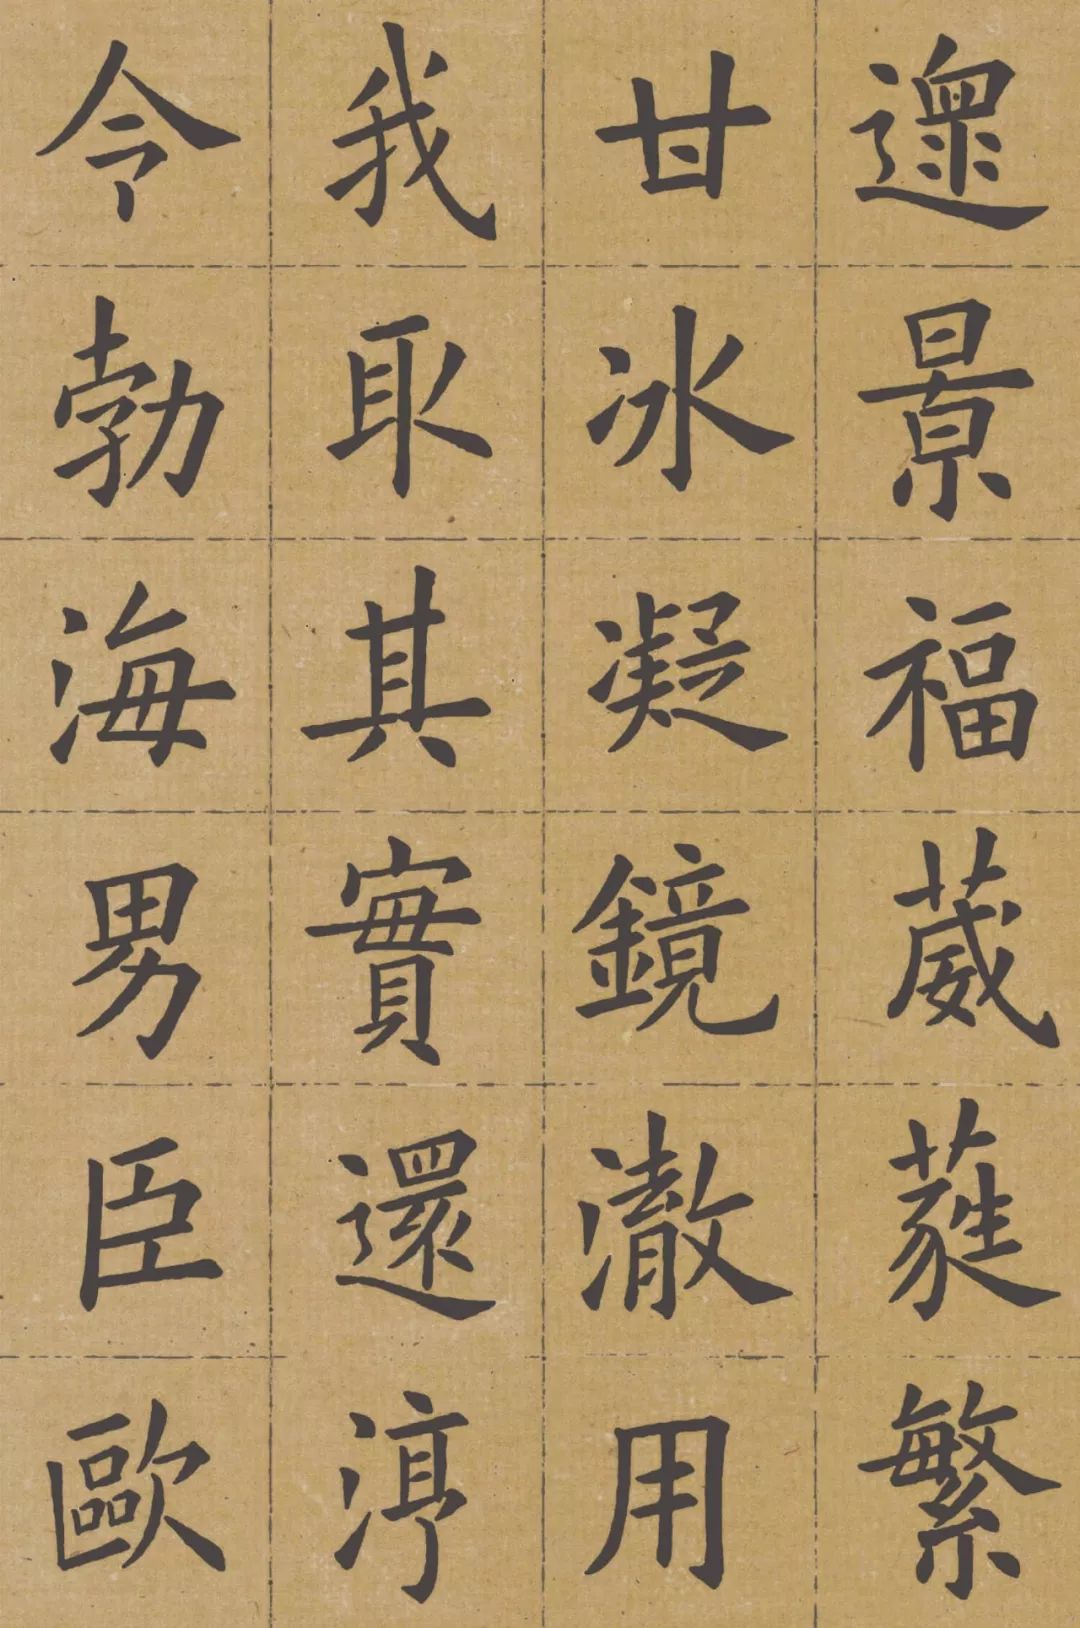 遝景福葳蕤繁
甘冰凝鏡澈用
我取其實還渟
令勃海男臣歐